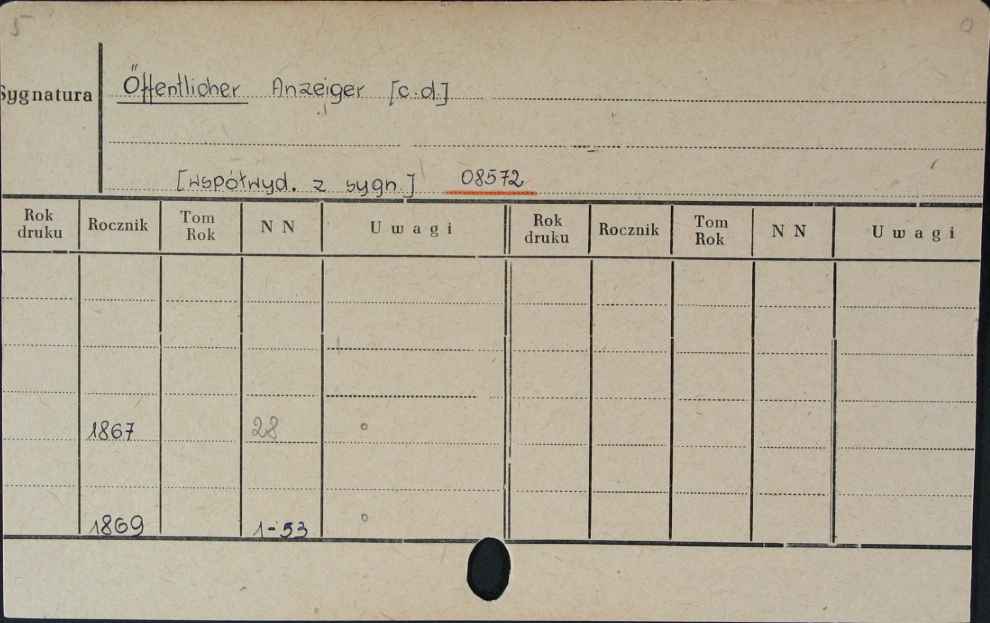 5 0
Sygnatura Öffentlicher Anzeiger [c.d.]
[współwyd. z sygn.] 08572
Rok druku Rocznik Tom Rok NN Uwagi Rok druku Rocznik Tom Rok NN Uwagi
1867 28 o
1869 1-53 o